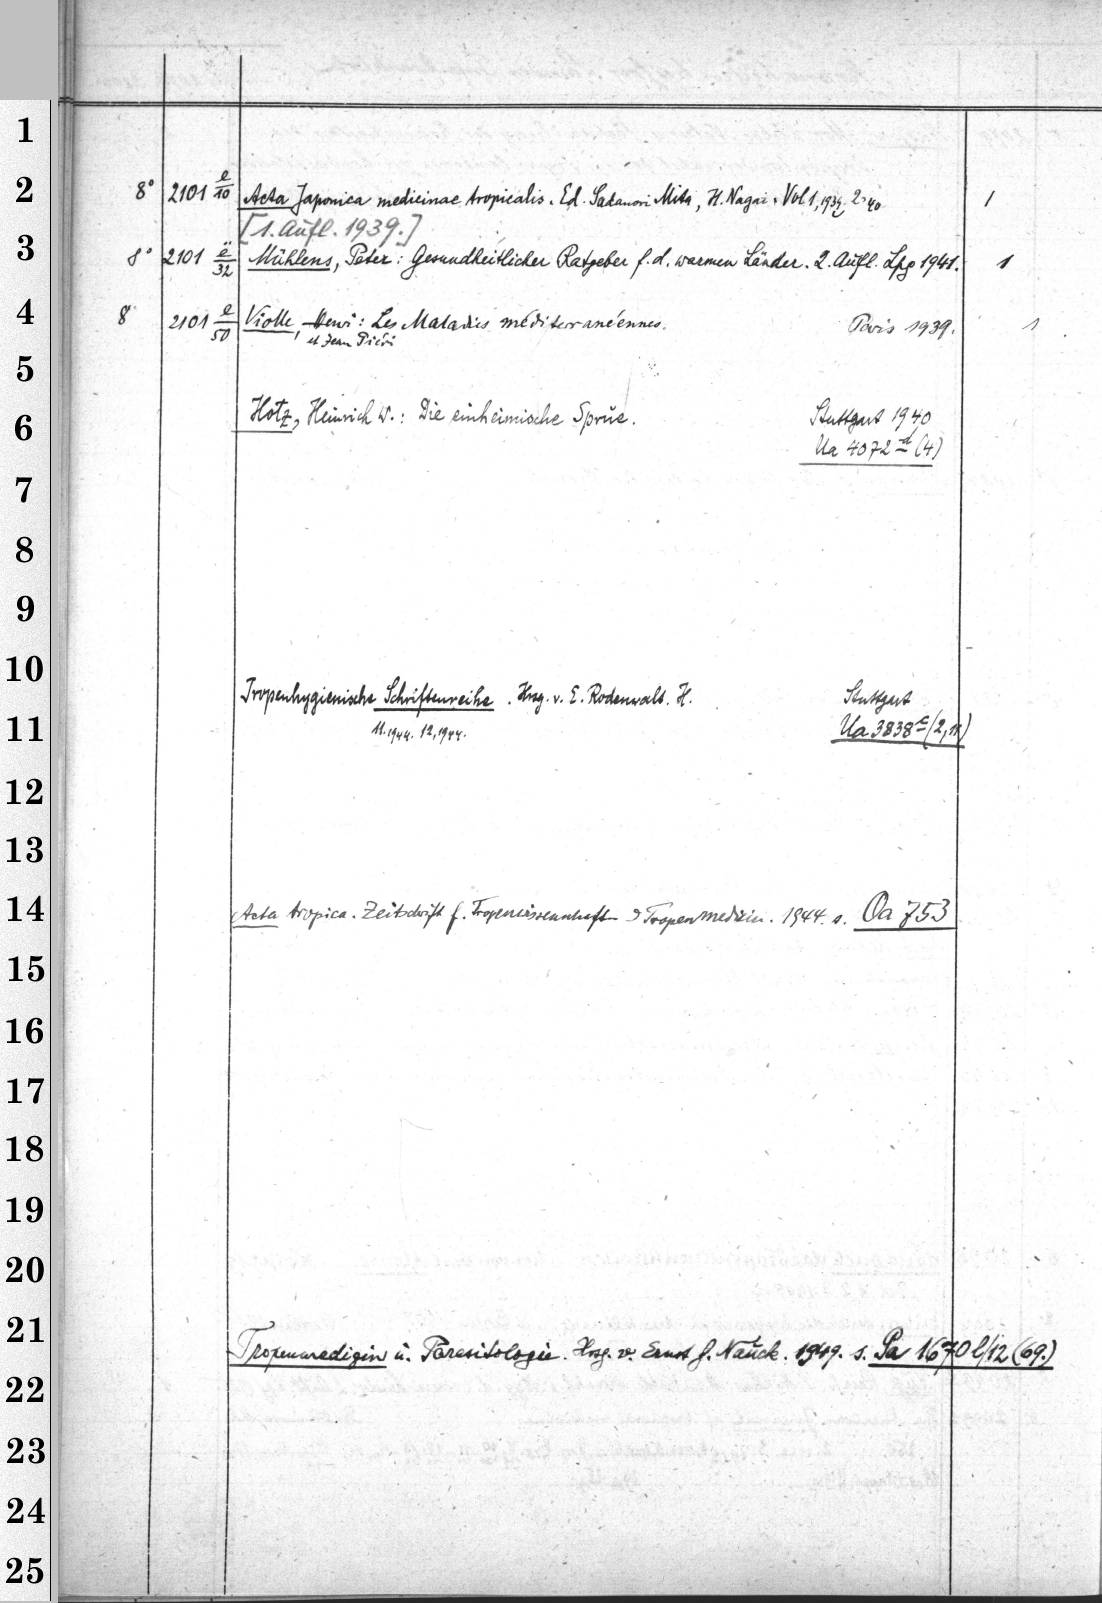 1
2
8° 2101 e/10 Acta Japonica medicinae tropicalis. Ed. Sadanori Mita, H. Nagai. Vol 1, 1939, 2. 40
[1. Aufl. 1939.]
3
8° 2101 ë/32 Mühlens, Peter: Gesundheitlicher Ratgeber f. d. warmen Länder. 2. Aufl. Lpg 1941. 1
4
8° 2101 e/50 Violle, Henri: Les Maladies méditerranéennes. Paris 1939. 1
et Jean Piéri
5
6
Hotz, Heinrich W.: Die einheimische Sprue. Stuttgart 1940
Ua 4072 d (4)
7
8
9
10
Tropenhygienische Schriftenreihe. Hrsg. v. E. Rodenwalt. H. Stuttgart
11
11. 1944. 12, 1944. Ua 3838 c (2, 11)
12
13
14
Acta tropica. Zeitschrift f. Tropenwissenschaft u Tropenmedizin. 1944. s. Oa 753
15
16
17
18
19
20
21
Tropenmedizin u. Parasitologie. Hrsg. v. Ernst G. Nauck. 1949. s. Pa 1670 l/12 (69.)
22
23
24
25